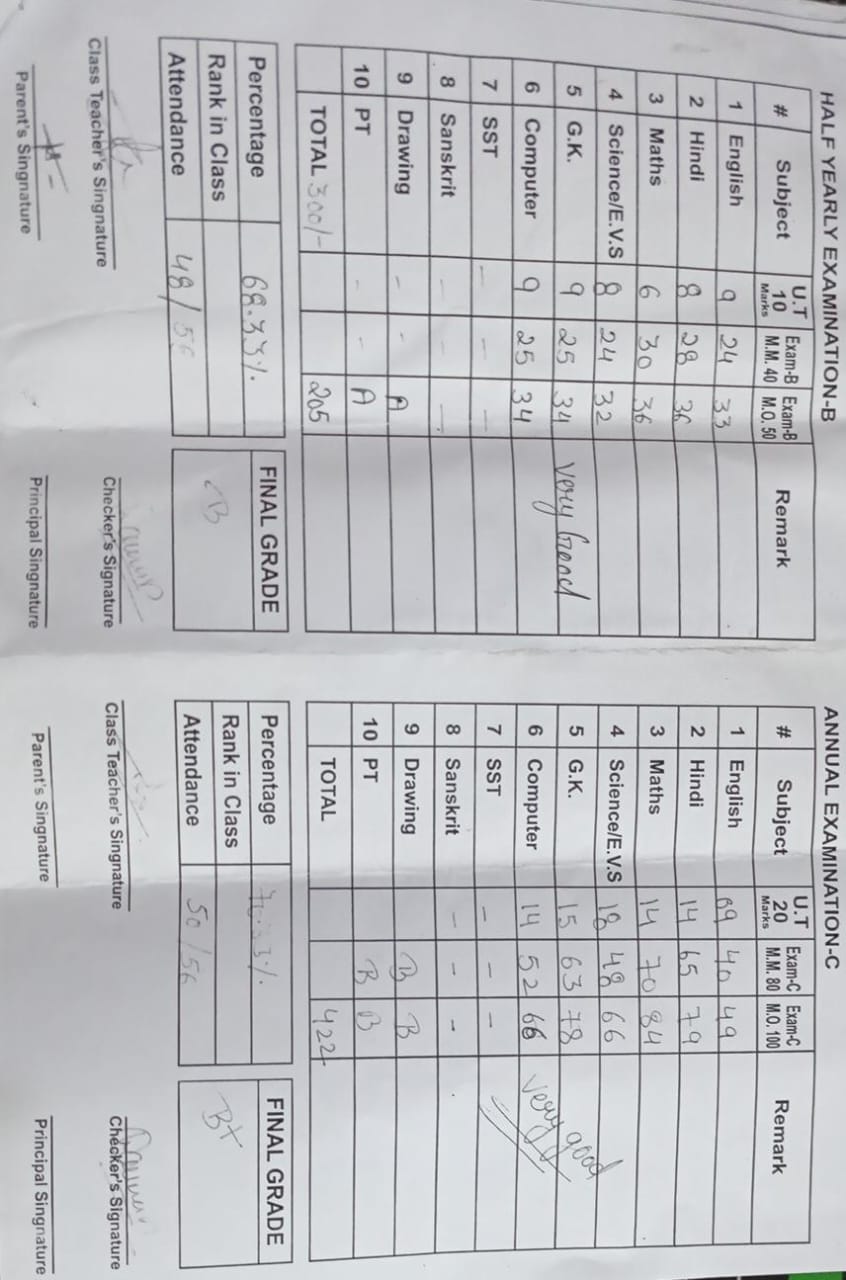 HALF YEARLY EXAMINATION-B
# Subject U.T 10 Marks Exam-B M.M. 40 Exam-B M.O. 50 Remark
1 English 9 24 33
2 Hindi 8 28 36
3 Maths 6 30 36
4 Science/E.V.S 8 24 32
5 G.K. 9 25 34 very Good
6 Computer 9 25 34
7 SST - - -
8 Sanskrit - - -
9 Drawing - - A
10 PT - - A
TOTAL 300/- 205
Percentage 68.33%.
Rank in Class
Attendance 48/56
FINAL GRADE
B
Class Teacher's Singnature
Checker's Signature
Parent's Singnature
Principal Singnature
ANNUAL EXAMINATION-C
# Subject U.T 20 Marks Exam-C M.M. 80 Exam-C M.O. 100 Remark
1 English 09 40 49
2 Hindi 14 65 79
3 Maths 14 70 84
4 Science/E.V.S 18 48 66
5 G.K. 15 63 78 very good
6 Computer 14 52 66
7 SST - - -
8 Sanskrit - - -
9 Drawing B B
10 PT B B
TOTAL 422
Percentage 70.33%.
Rank in Class
Attendance 50/56
FINAL GRADE
B+
Class Teacher's Singnature
Checker's Signature
Parent's Singnature
Principal Singnature